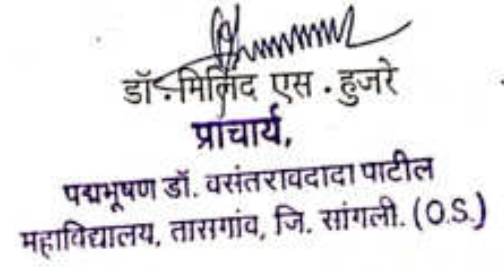 डॉ. मिलिंद एस . हुजरे
प्राचार्य,
पद्मभूषण डॉ. वसंतरावदादा पाटील
महाविद्यालय, तासगांव, जि. सांगली. (O.S.)